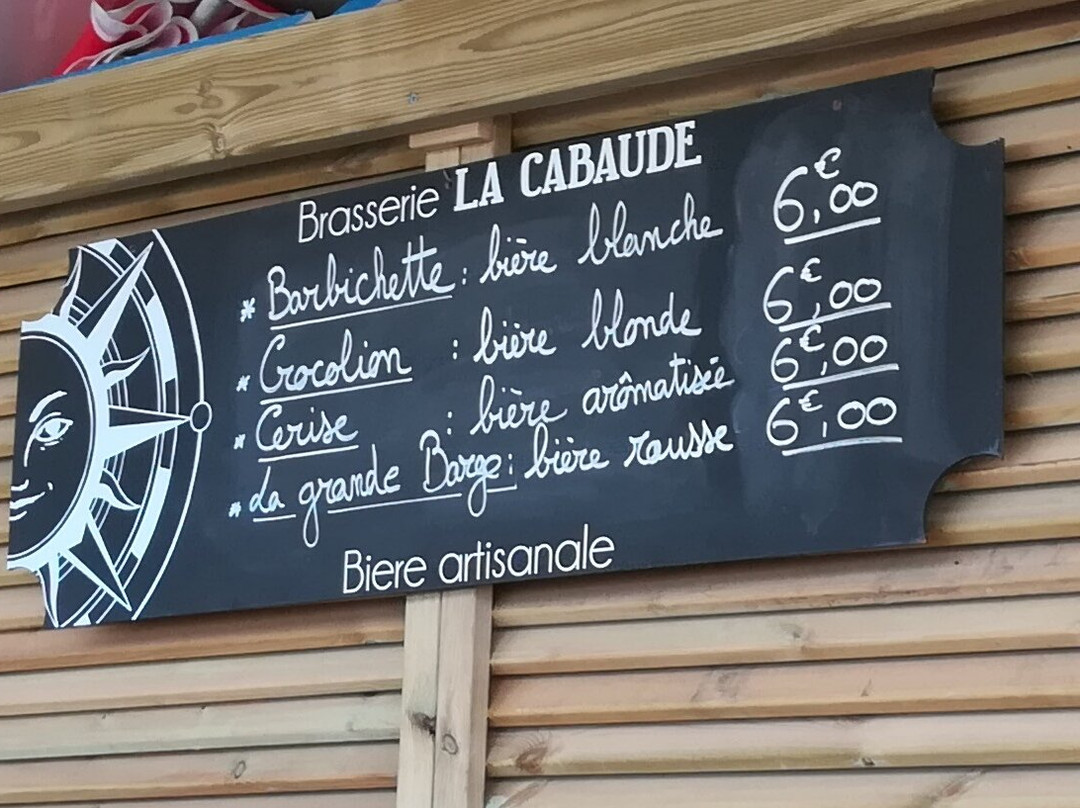 Brasserie LA CABAUDE
* Barbichette : bière blanche 6,00€
* Crocolion : bière blonde 6,00€
* Cerise : bière arômatisée 6,00€
* La grande Barge : bière rousse 6,00€
Biere artisanale